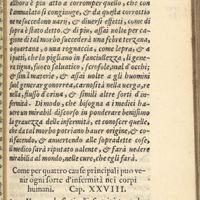 alhora è piu atto a corromper quello, che con
l'ammalato si congiunge, & da quella corrotto
ne succedono varij, & diuersi effetti, come di
sopra è stato detto. & di piu, assai volte per ca-
gione di tal morbo succederà una febre terzana,
quartana, o uua rognaccia, come lepra, & a
i putti, che pigliamo in fanciullezza, si gene-
ra tigna, fuoco saluatico, scrofule, mal d'occhi;
& simil materie, & assai uolte a gli huomini
suol generar gonorrea, carnosità nella verga, dolor di
rene, dolor d'ossa, & simili altre sorti d'in-
firmità. Dimodo, che bisogna a i medici ha-
uere un mirabil discorso in ponderare benissimo
la grauezza delle infirmità, et conoscer quelle,
che da tal morbo potriano hauer origine, & co-
noscendole, & auuertendo alle sopradette cose,
il medico sarà riputato valente, & farà vedere
mirabilia al mondo, nelle cure, che egli farà.
Come per quattro cause principali puo ve-
nir ogni sorte d'infermità ne i corpi
humani. Cap. XXVIII.